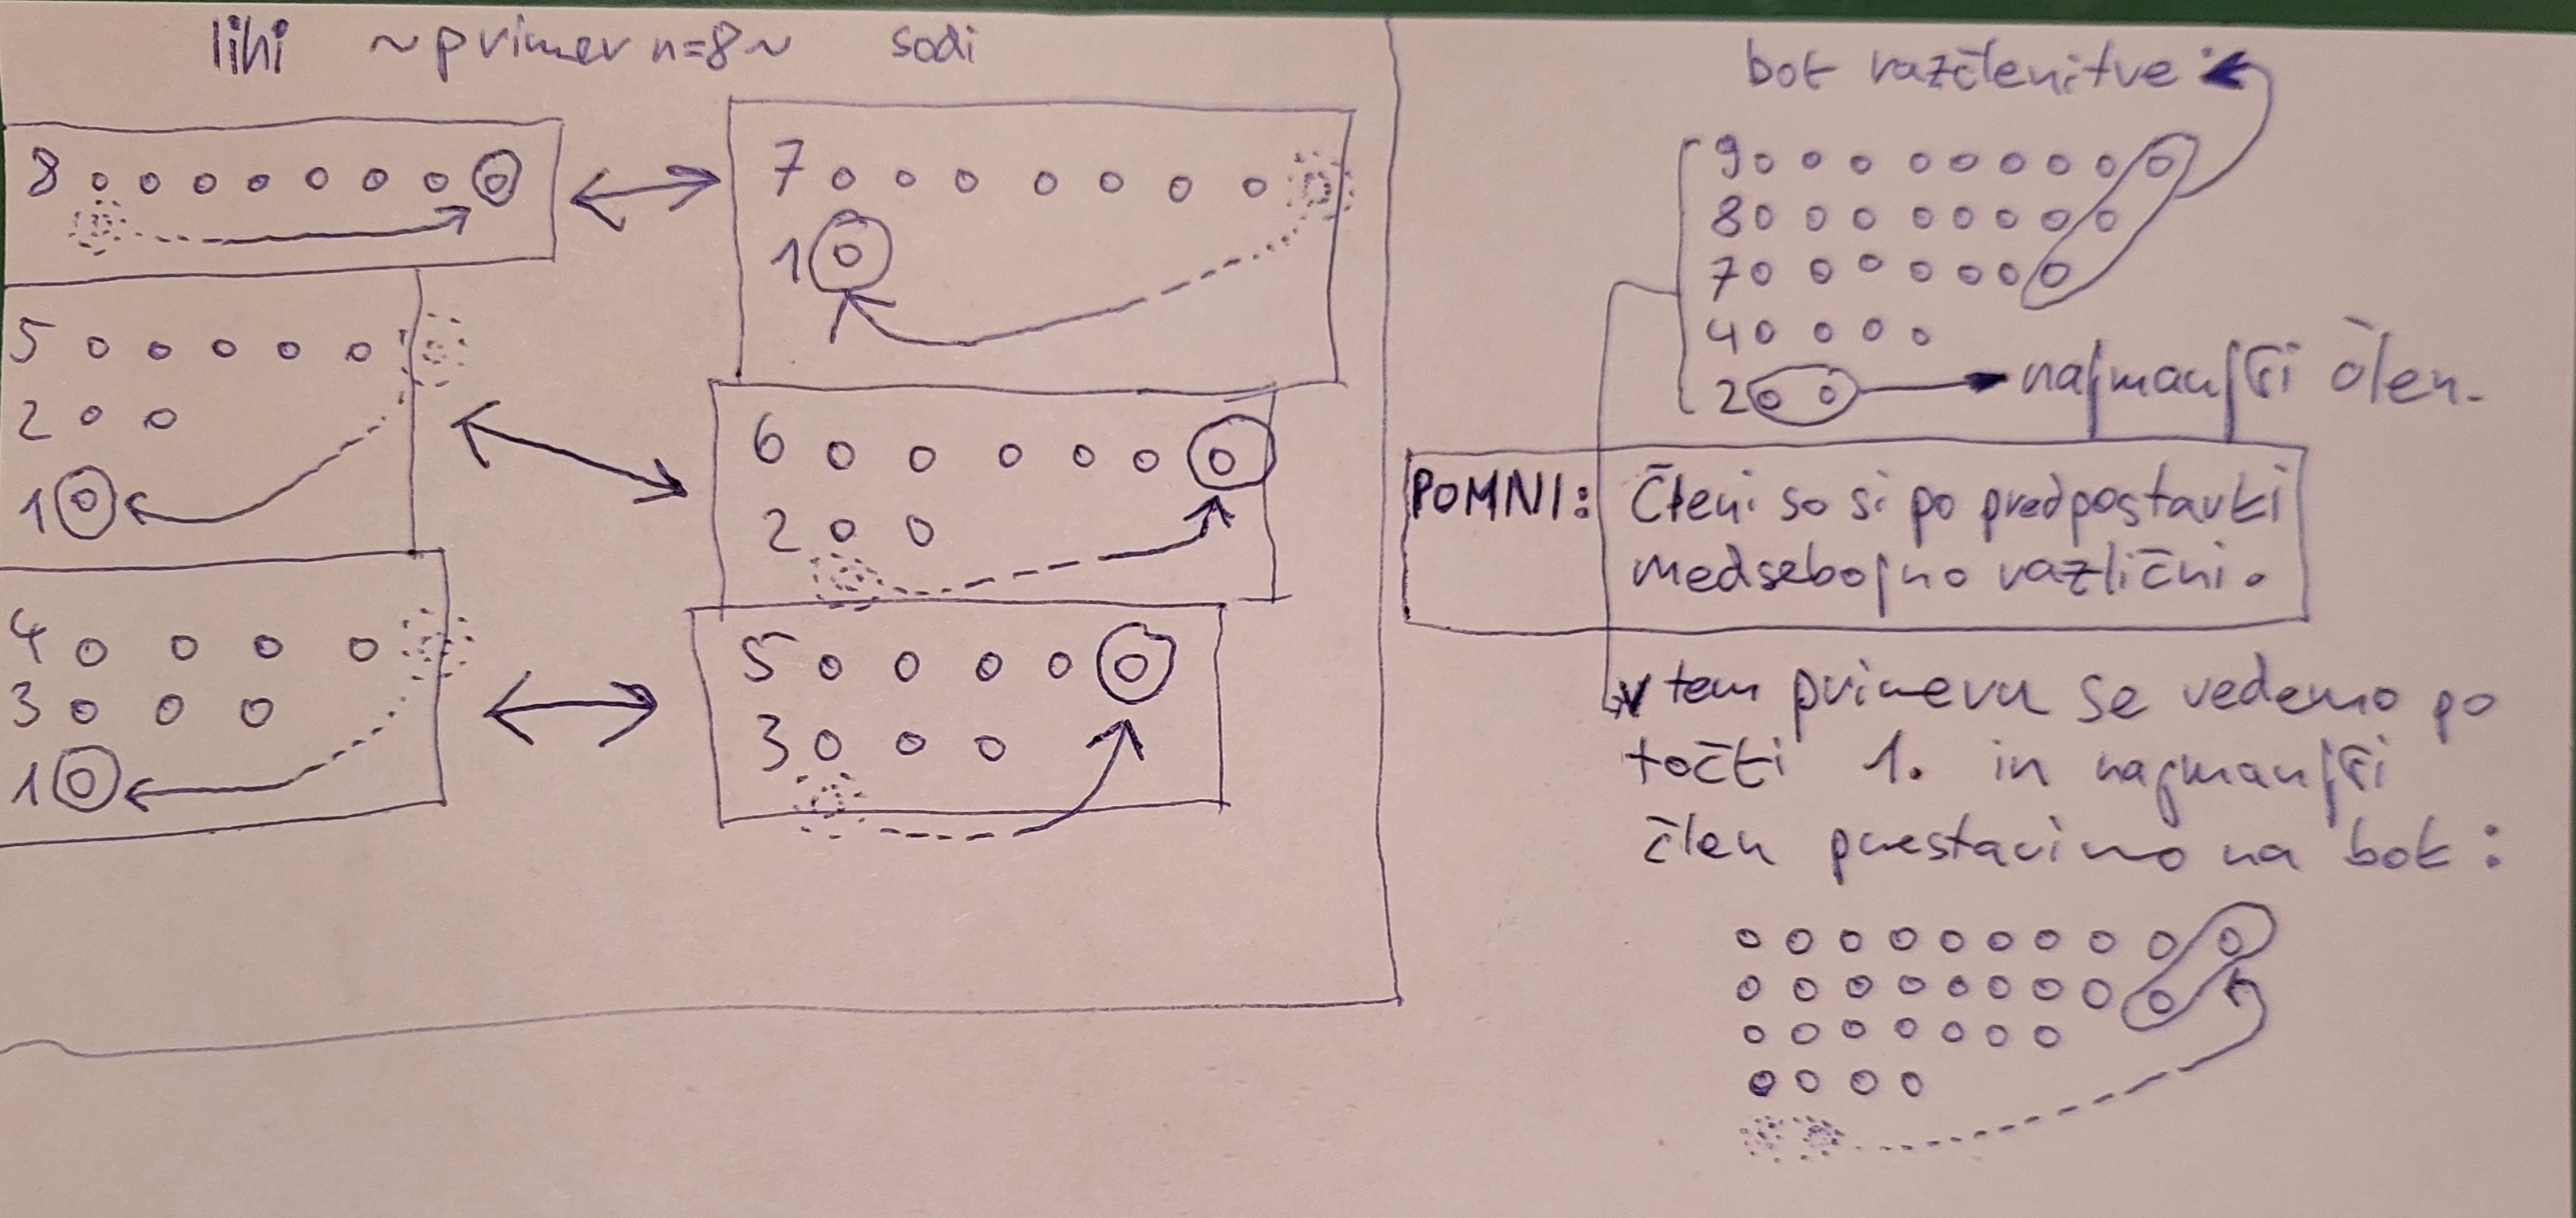 lihi ~primer n=8~ sodi
8
7
1
5
2
1
6
2
4
3
1
5
3
bok razčlenitve
9
8
7
4
2
najmanjši člen.
POMNI: Členi so si po predpostavki
medsebojno različni.
v tem primeru se vedemo po
točki 1. in najmanjši
člen prestavimo na bok: